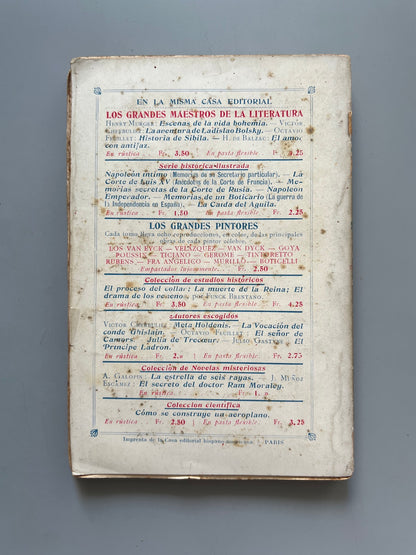 EN LA MISMA CASA EDITORIAL
LOS GRANDES MAESTROS DE LA LITERATURA
HENRY MURGER: Escenas de la vida bohemia. — VICTOR
CHERBULIEZ: La aventura de Ladislao Bolsky. — OCTAVIO
FEUILLET: Historia de Sibila. — H. DE BALZAC: El amo:
con antifaz.
En rústica Fr. 3.50 En pasta flexible. Fr. 4.25
Serie histórica-ilustrada
Napoleon íntimo (Memorias de un Secretario particular). — La
Corte de Luis XV (Anécdotas de la Corte de Francia). — Me-
morias secretas de la Corte de Rusia. — Napoleon
Emperador. — Memorias de un Boticario (La guerra de
la Independencia en España). — La Caída del Aguila.
En rústica . . . Fr. 1.50 En pasta flexible. . . Fr. 2.25
LOS GRANDES PINTORES
Cada tomo lleva ocho reproducciones, en color, de las principales
obras de cada pintor célebre.
LOS VAN EYCK — VELAZQUEZ — VAN DYCK — GOYA
POUSSIN — TICIANO — GEROME — TINTORETTO
RUBENS — FRA ANGELICO — MURILLO — BOTICELLI
Empastados lujosamente. . . Fr. 2.50
Colección de estudios históricos
El proceso del collar; La muerte de la Reina; El
drama de los venenos, por FUNCK BRENTANO.
En rústica . . . Fr. 3.50 En pasta flexible . . . Fr. 4.25
Autores escogidos
VICTOR CHERBULIEZ: Meta Holdenis. — La Vocación del
conde Ghislain. — OCTAVIO FEUILLET: El señor de
Camors. — Julia de Trecœur. — JULIO GASTYNE: El
Príncipe Ladron.
En rústica . . Fr. 2. » En pasta flexible. . Fr. 2.75
Colección de Novelas misteriosas
A. GALOPIN: La estrella de seis rayas. — J. MUÑOZ
ESCAMEZ: El secreto del doctor Ram Moraley.
En rústica . . . Fr. 1. »
Colección científica
Cómo se construye un aeroplano.
En rústica . . Fr. 2.50 En pasta flexible. . Fr. 3.25
Imprenta de la Casa editorial hispano-americana. — PARIS